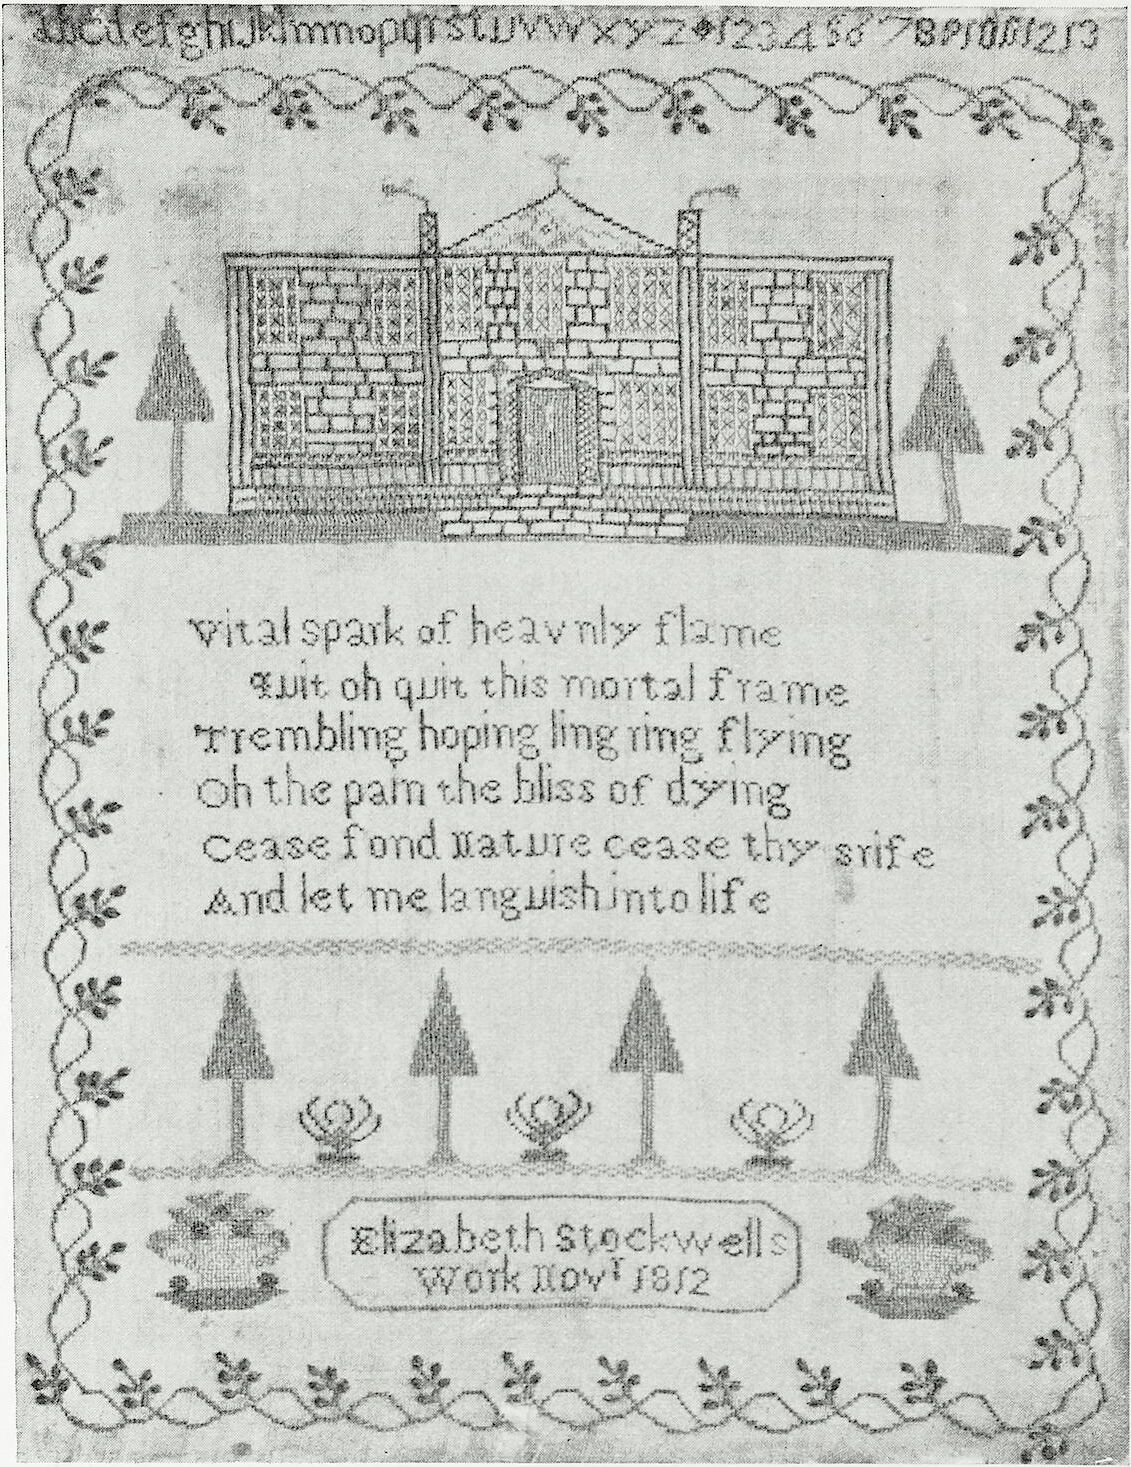 abcdefghijklmnopqrstuvwxyz 1 2 3 4 5 6 7 8 9 10 11 12 13
Vital spark of heavnly flame
Quit oh quit this mortal frame
Trembling hoping ling ring flying
Oh the pain the bliss of dying
Cease fond Nature cease thy srife
And let me languish into life
Elizabeth Stockwells
Work Novr 1812